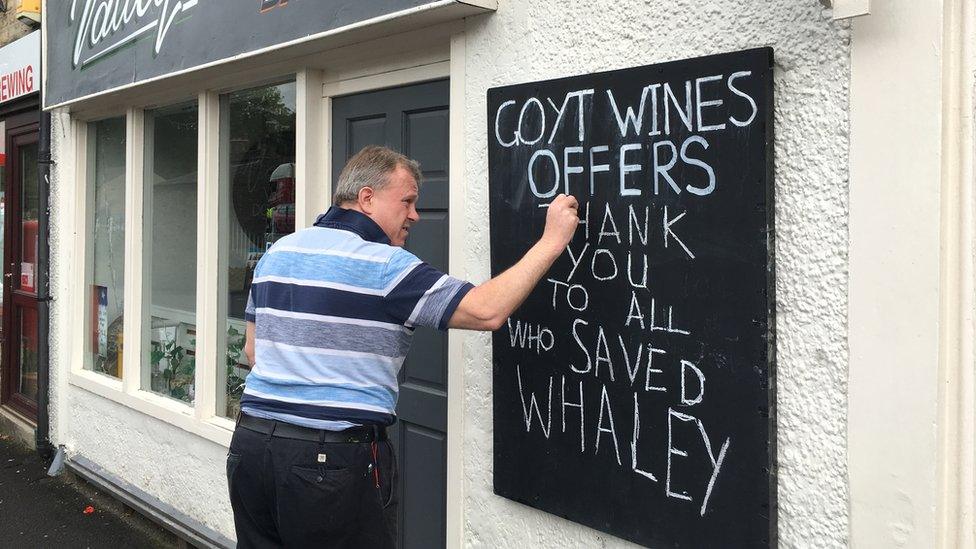 EWING
Valley
GOYT WINES
OFFERS
THANK
YOU
TO ALL
WHO SAVED
WHALEY